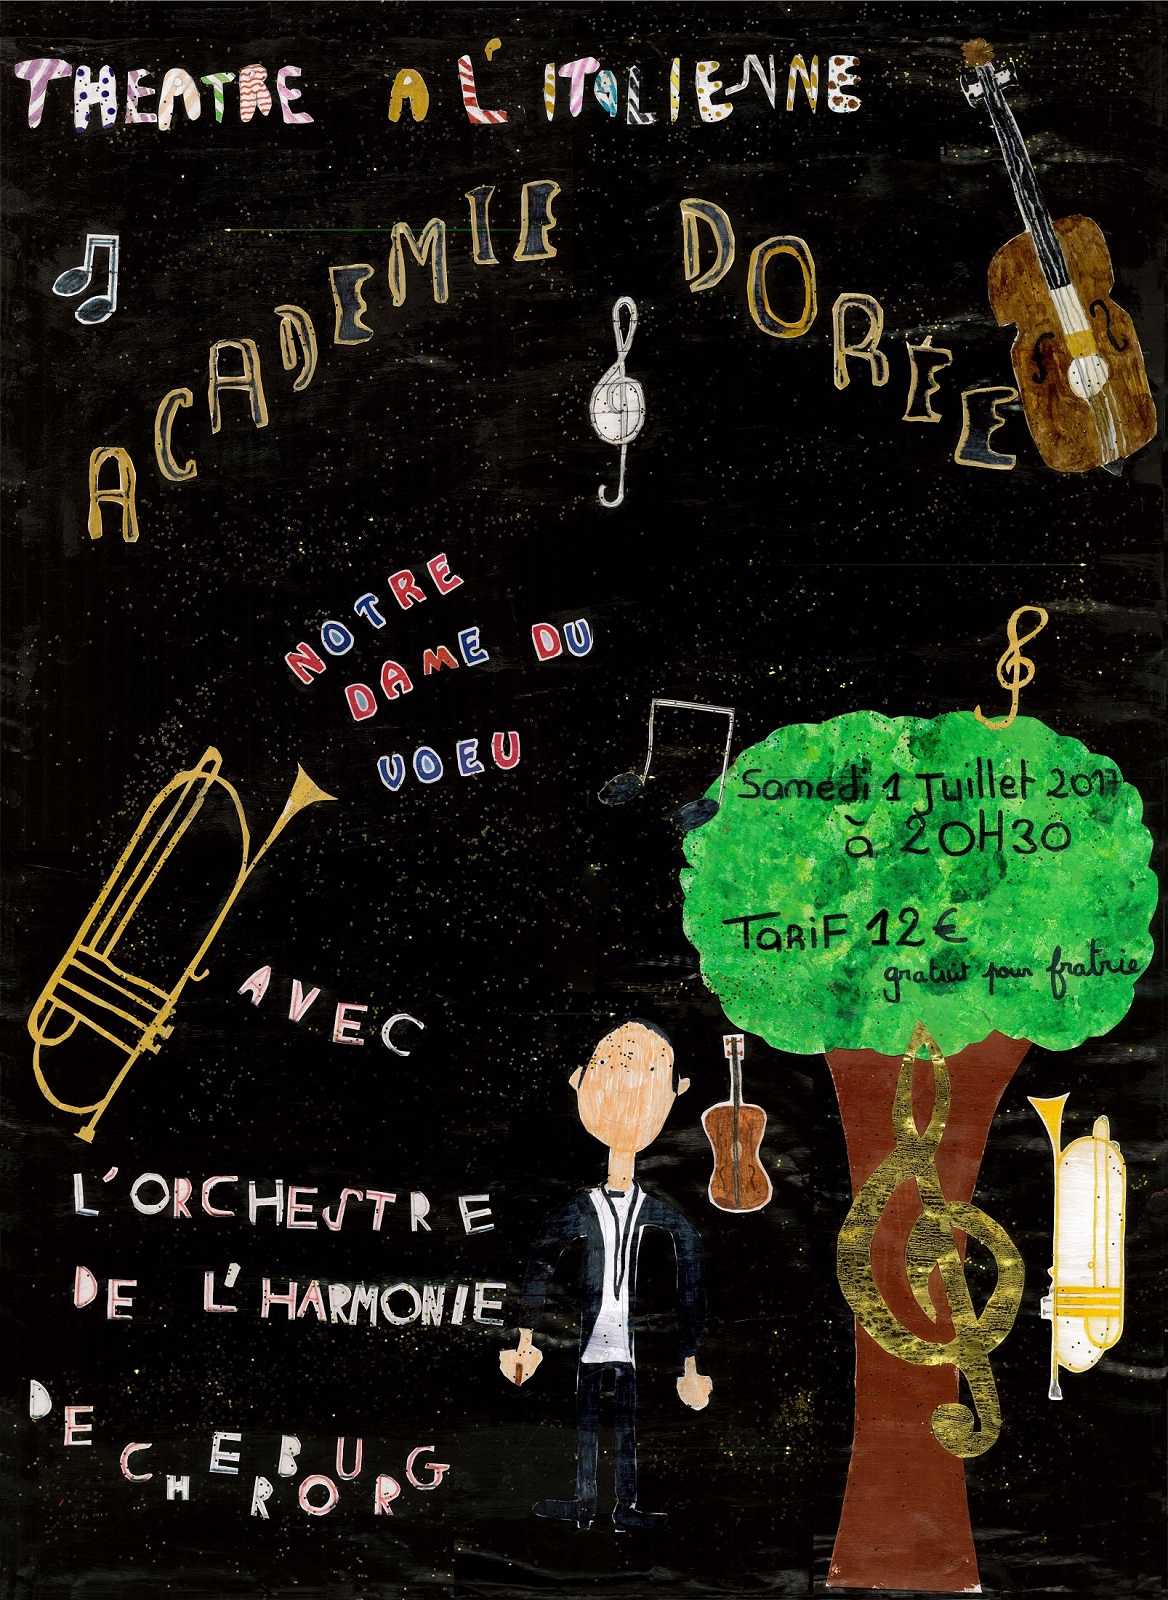 THEATRE A L'ITALIENNE
ACADEMIE DOREE
NOTRE
DAME DU
VOEU
Samedi 1 Juillet 2017
à 20H30
TARIF 12€
gratuit pour fratrie
AVEC
L'ORCHESTRE
DE L'HARMONIE
DE CHERBOURG